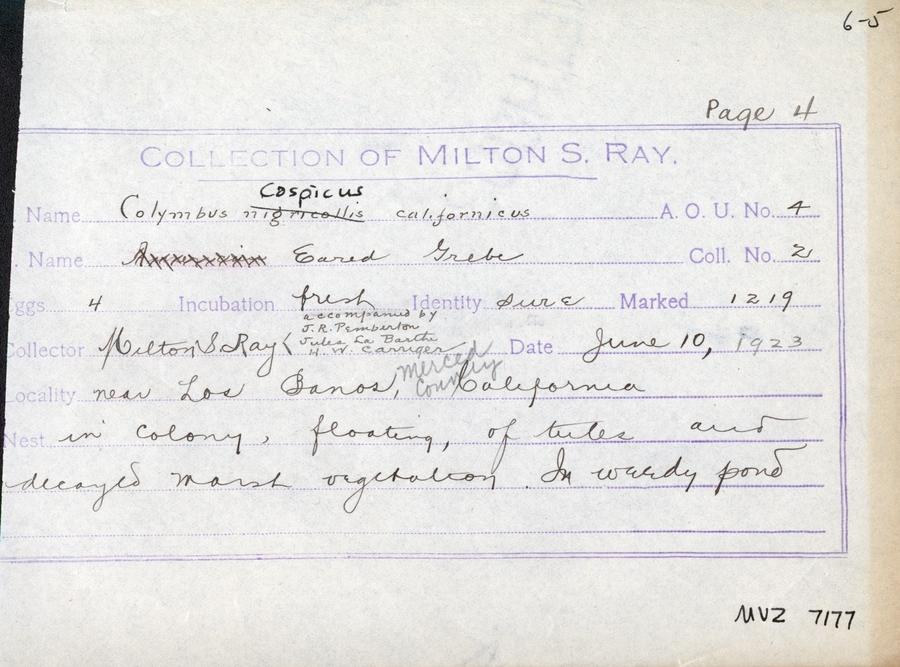 6-5
Page 4
COLLECTION OF MILTON S. RAY.
Caspicus
Name Colymbus nigricollis californicus A. O. U. No. 4
. Name American Eared Grebe Coll. No. 2
ggs 4 Incubation fresh Identity sure Marked 1219
accompanied by
J. R. Pemberton
Jules La Barthe
H. W. Carriger
Collector Milton S Ray Date June 10, 1923
Merced
County
Locality near Los Banos, California
Nest in colony, floating, of tules and
decayed marsh vegetation. In weedy pond
MVZ 7177